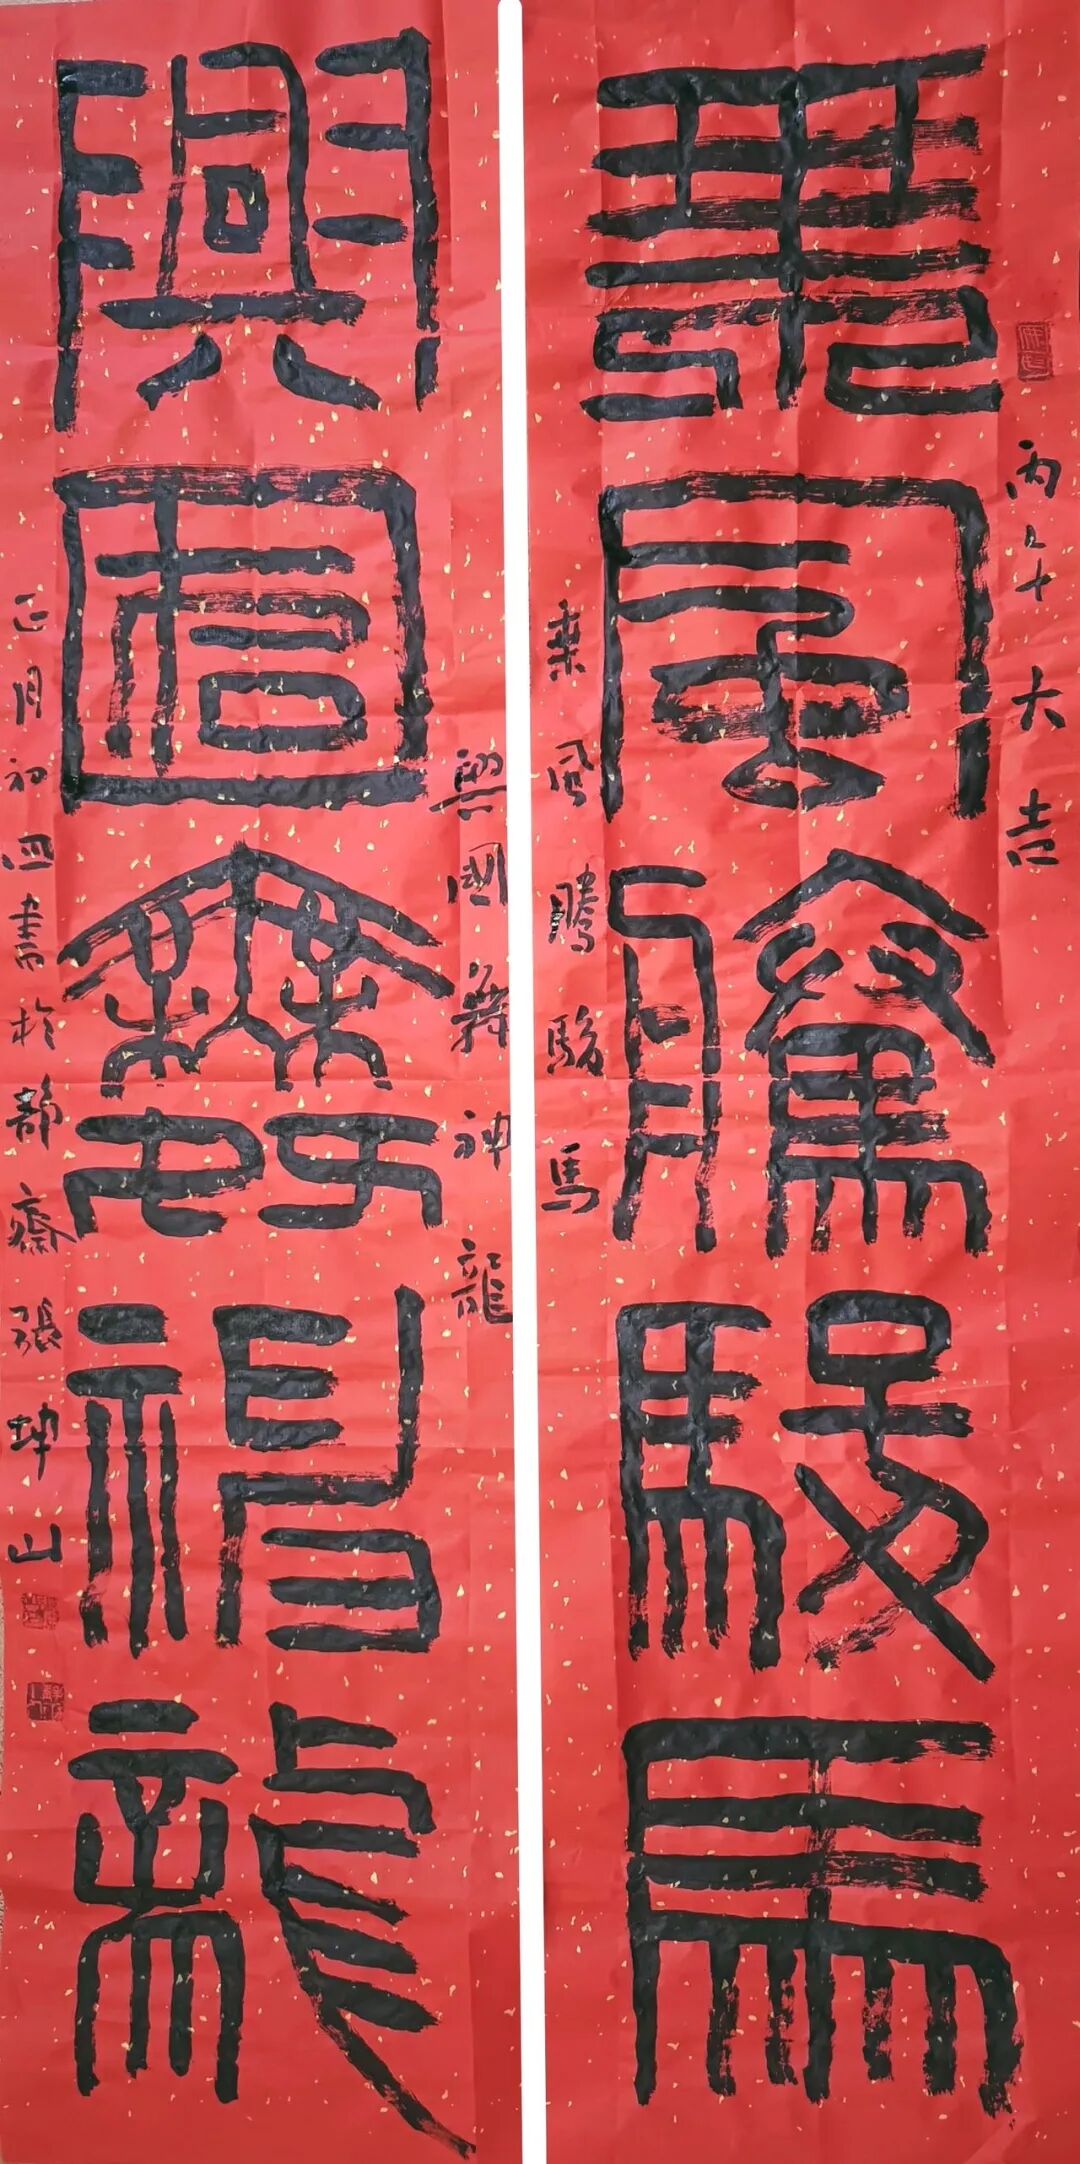 丙午大吉
乘風騰駿馬
乘風騰駿馬
興國舞神龍
興國舞神龍
正月初四書於靜齋張坤山